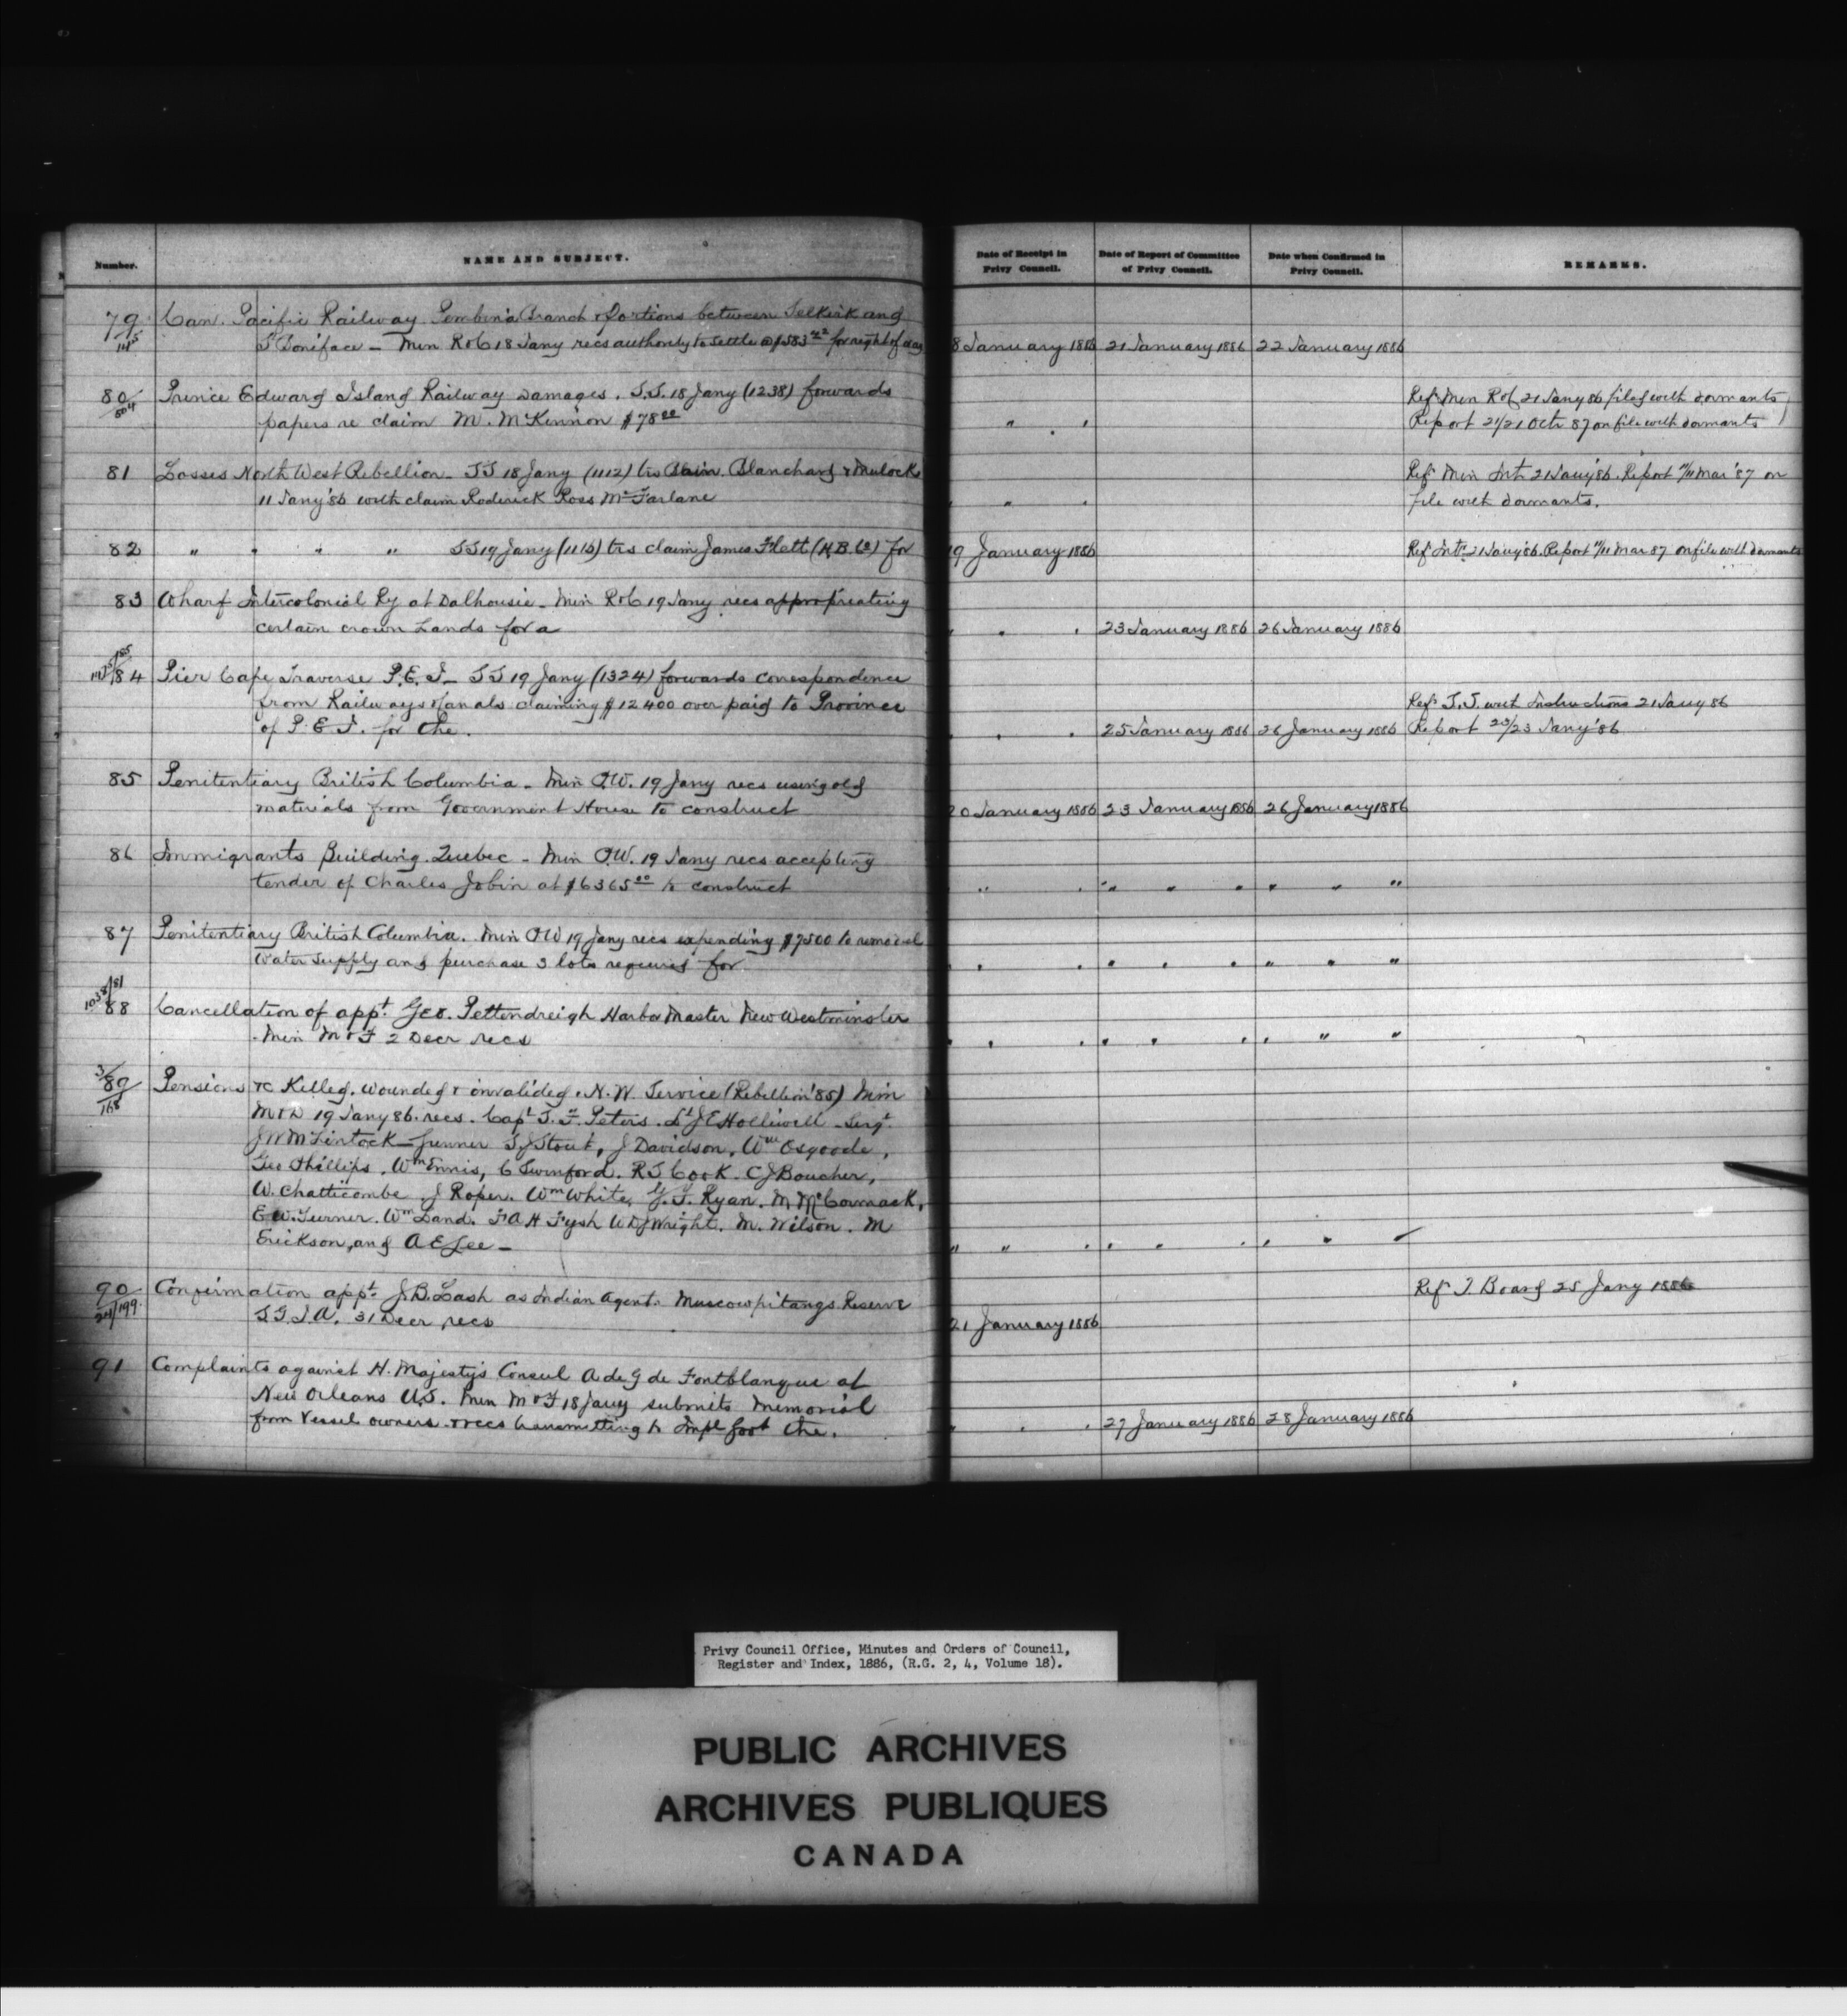 Number. NAME AND SUBJECT. Date of Receipt in Privy Council. Date of Report of Committee of Privy Council. Date when Confirmed in Privy Council. REMARKS.
79 Can. Pacific Railway Pembina Branch & Portions between Selkirk and
St Boniface — Min R&C 18 Jany recs authority to settle @ $583 for right of way 8 January 1886 21 January 1886 22 January 1886
80/504 Prince Edward Island Railway Damages. S.S. 18 Jany (1238) forwards Refd Min R&C 21 Jany 86 filed with dormants
papers re claim M. McKinnon $78 00 " " Report 21/21 Octr 87 on file with dormants
81 Losses North West Rebellion – SS 18 Jany (1112) trs Bain Blanchard & Mulock Refd Min Int 21 Jany '86. Report 11/11 Mar '87 on
11 Jany '86 with claim Roderick Ross McFarlane " " " file with dormants.
82 " " " " SS 19 Jany (1115) trs claim James Flett (H.B. Co) for 19 January 1886 Refd Intr 21 Jany '86. Report 11/11 Mar 87 on file with dormants
83 Wharf Intercolonial Ry at Dalhousie – Min R&C 19 Jany recs appropriating
certain crown Lands for a " " " 23 January 1886 26 January 1886
84 Pier Cape Traverse P.E.I – SS 19 Jany (1324) forwards correspondence
from Railways & Canals claiming $12400 over paid to Province Refd S.S. with Instructions 21 Jany 86
of P.E.I. for the. " " 25 January 1886 26 January 1886 Report 23/23 Jany '86
85 Penitentiary British Columbia – Min P.W. 19 Jany recs using old
materials from Government House to construct 20 January 1886 23 January 1886 26 January 1886
86 Immigrants Building. Quebec – Min P.W. 19 Jany recs accepting
tender of Charles Jobin at $6365 00 to construct " " " " " " " "
87 Penitentiary British Columbia. Min P.W 19 Jany recs expending $7500 to remodel
Water Supply and purchase 3 lots required for " " " " " " " "
1038/81 88 Cancellation of appt Geo. Pettendreigh Harbor Master New Westminster
Min M&F 2 Decr recs " " " " " " " "
3/89/168 Pensions &c Killed, wounded & invalided. N.W. Service (Rebellion '85) Min
M&D 19 Jany 86. recs. Capt J. F. Peters. Lt J E Holliwell – Sergt
J W McLintock – Gunner S J Stout, J Davidson, Wm Osgoode,
Geo Phillips, Wm Ennis, C Swinford. R S Cook. C J Boucher,
W. Chatticombe, J Roper. Wm White, G. T. Ryan. M. McCormack,
E W. Turner. Wm Land. F A H Fysh W D J Wright. M. Wilson. M
Erickson, and A E Lee – " " " " " " " " "
90 Confirmation appt J.B. Lash as Indian Agent. Muscowpitangs Reserve Refd T. Board 25 Jany 1886
24/199 S G I A. 31 Decr recs 21 January 1886
91 Complaints against H. Majesty's Consul A de G de Fontblanque at
New Orleans U.S. Min M&F 18 Jany submits Memorial
from Vessel owners & recs transmitting to Impl Govt the. " " " 27 January 1886 28 January 1886
Privy Council Office, Minutes and Orders of Council,
Register and Index, 1886, (R.G. 2, 4, Volume 18).
PUBLIC ARCHIVES
ARCHIVES PUBLIQUES
CANADA